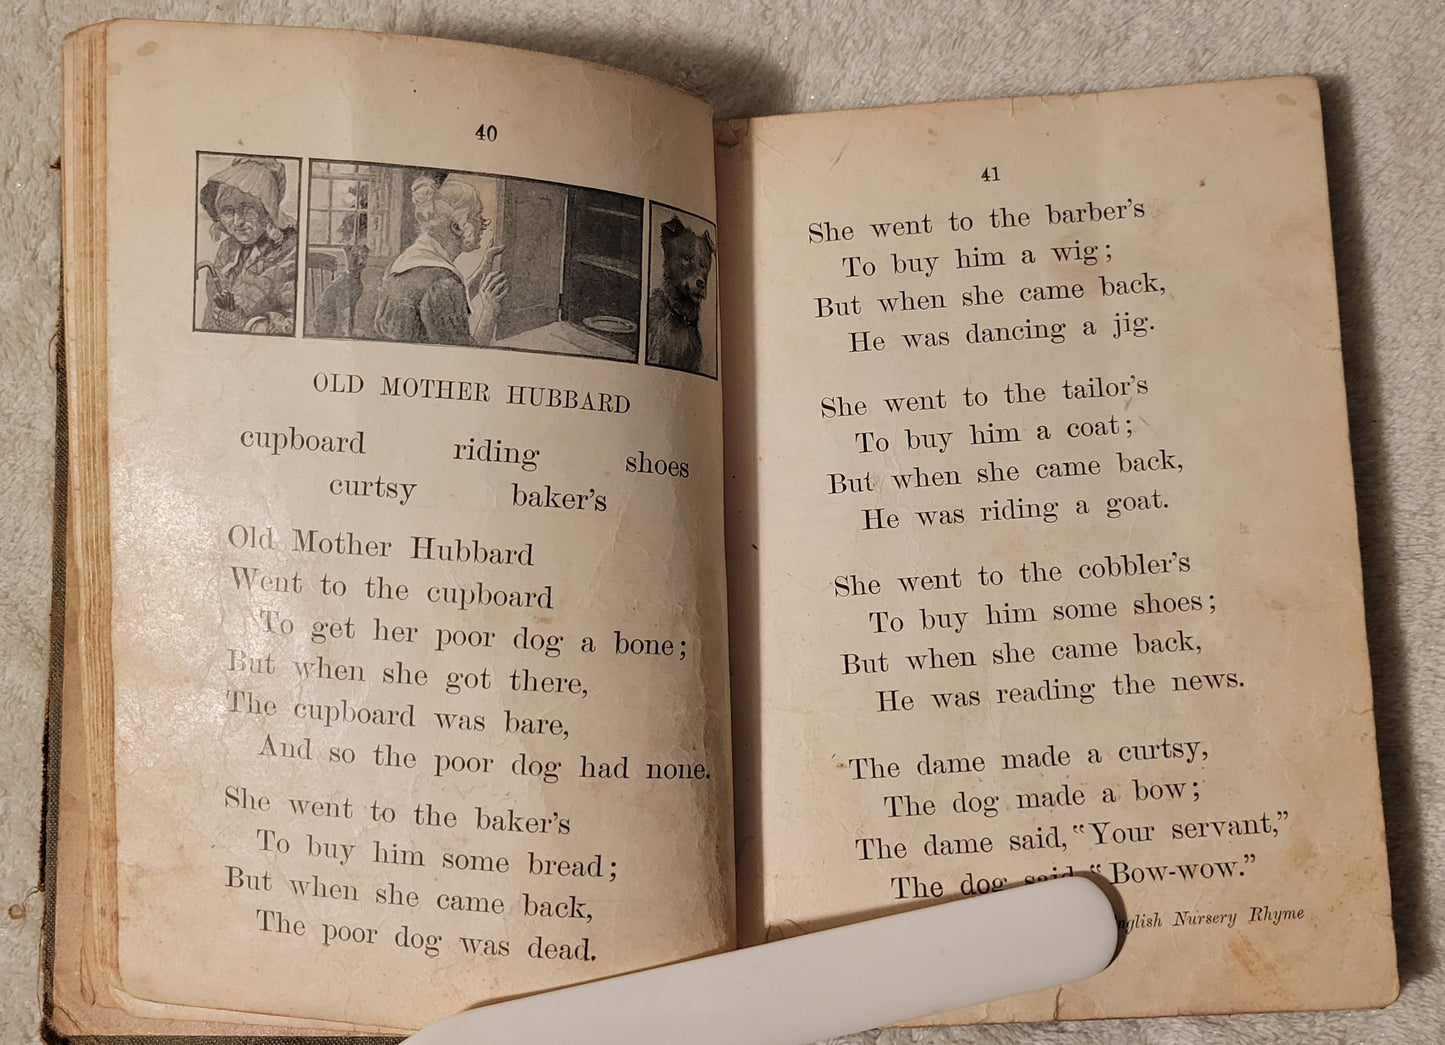 40
OLD MOTHER HUBBARD
cupboard riding shoes
curtsy baker's
Old Mother Hubbard
Went to the cupboard
To get her poor dog a bone;
But when she got there,
The cupboard was bare,
And so the poor dog had none.
She went to the baker's
To buy him some bread;
But when she came back,
The poor dog was dead.
41
She went to the barber's
To buy him a wig;
But when she came back,
He was dancing a jig.
She went to the tailor's
To buy him a coat;
But when she came back,
He was riding a goat.
She went to the cobbler's
To buy him some shoes;
But when she came back,
He was reading the news.
The dame made a curtsy,
The dog made a bow;
The dame said, "Your servant,"
The dog said "Bow-wow."
nglish Nursery Rhyme